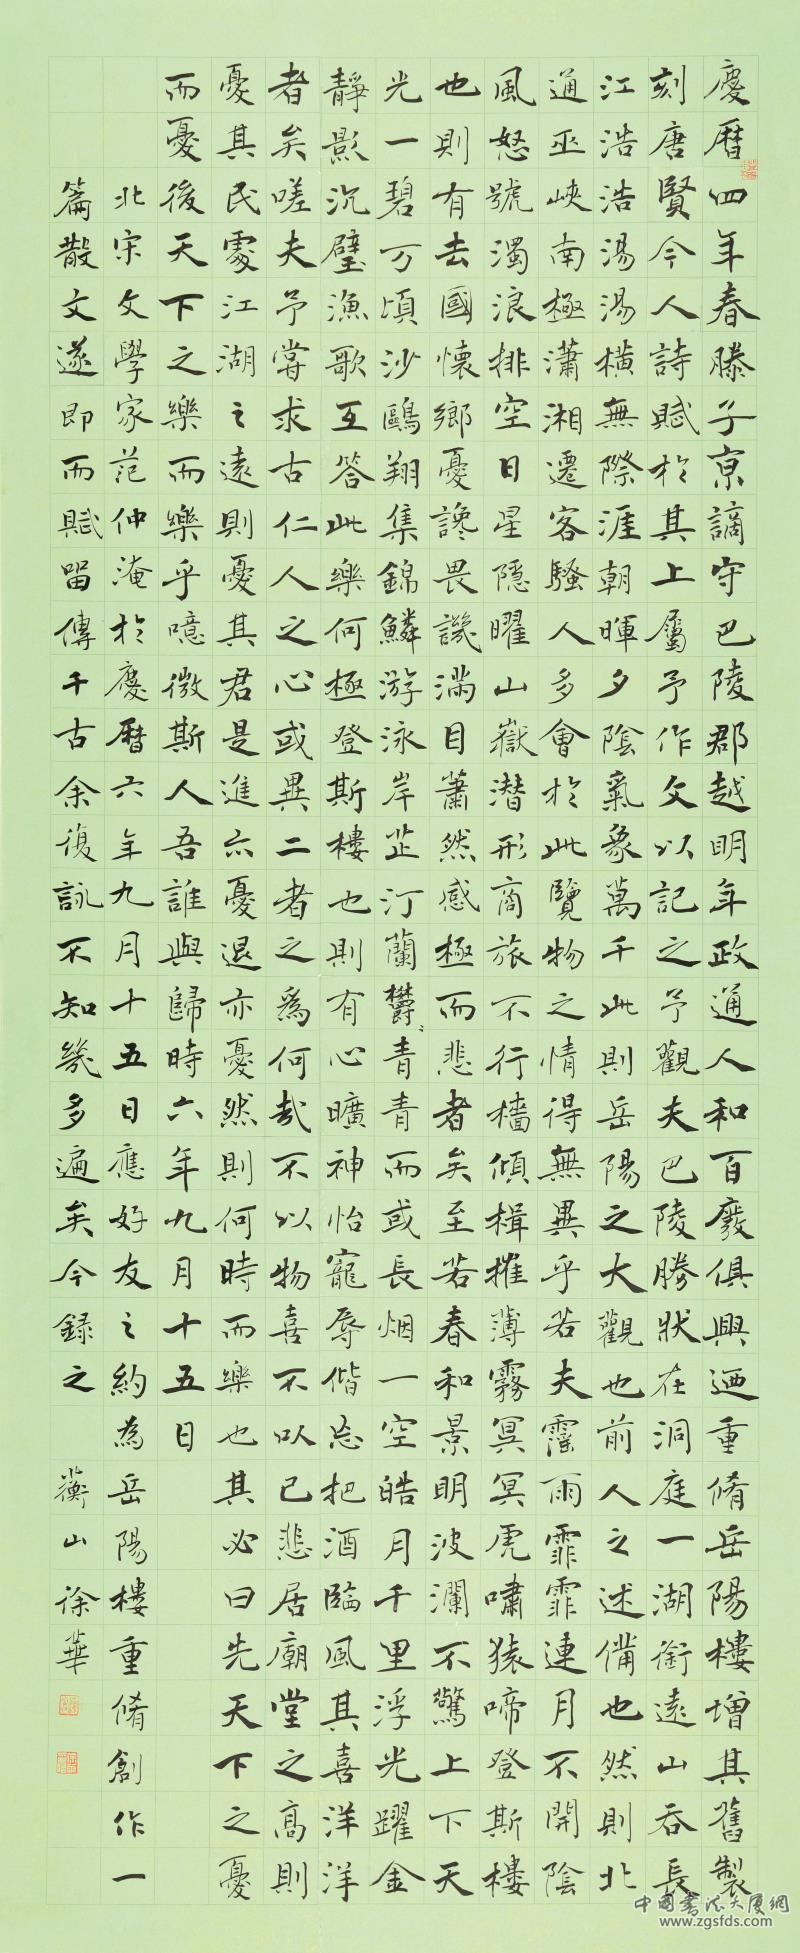 慶曆四年春滕子京謫守巴陵郡越明年政通人和百廢俱興迺重脩岳陽樓增其舊製
刻唐賢今人詩賦於其上屬予作文以記之予觀夫巴陵勝狀在洞庭一湖銜遠山吞長
江浩浩湯湯橫無際涯朝暉夕陰氣象萬千此則岳陽之大觀也前人之述備也然則北
通巫峽南極瀟湘遷客騷人多會於此覽物之情得無異乎若夫霪雨霏霏連月不開陰
風怒號濁浪排空日星隱曜山嶽潛形商旅不行檣傾楫摧薄霧冥冥虎嘯猿啼登斯樓
也則有去國懷鄉憂讒畏譏滿目蕭然感極而悲者矣至若春和景明波瀾不驚上下天
光一碧万頃沙鷗翔集錦鱗游泳岸芷汀蘭欝々青青而或長烟一空皓月千里浮光躍金
靜影沉璧漁歌互答此樂何極登斯樓也則有心曠神怡寵辱偕忘把酒臨風其喜洋洋
者矣嗟夫予嘗求古仁人之心或異二者之爲何哉不以物喜不以己悲居廟堂之高則
憂其民處江湖之遠則憂其君是進亦憂退亦憂然則何時而樂也其必曰先天下之憂
而憂後天下之樂而樂乎噫微斯人吾誰與歸時六年九月十五日
北宋文學家范仲淹於慶曆六年九月十五日應好友之約為岳陽樓重脩創作一
篇散文遂即而賦留傳千古余復詠不知幾多遍矣今錄之 衡山徐華
中國書法大廈網
www.zgsfds.com